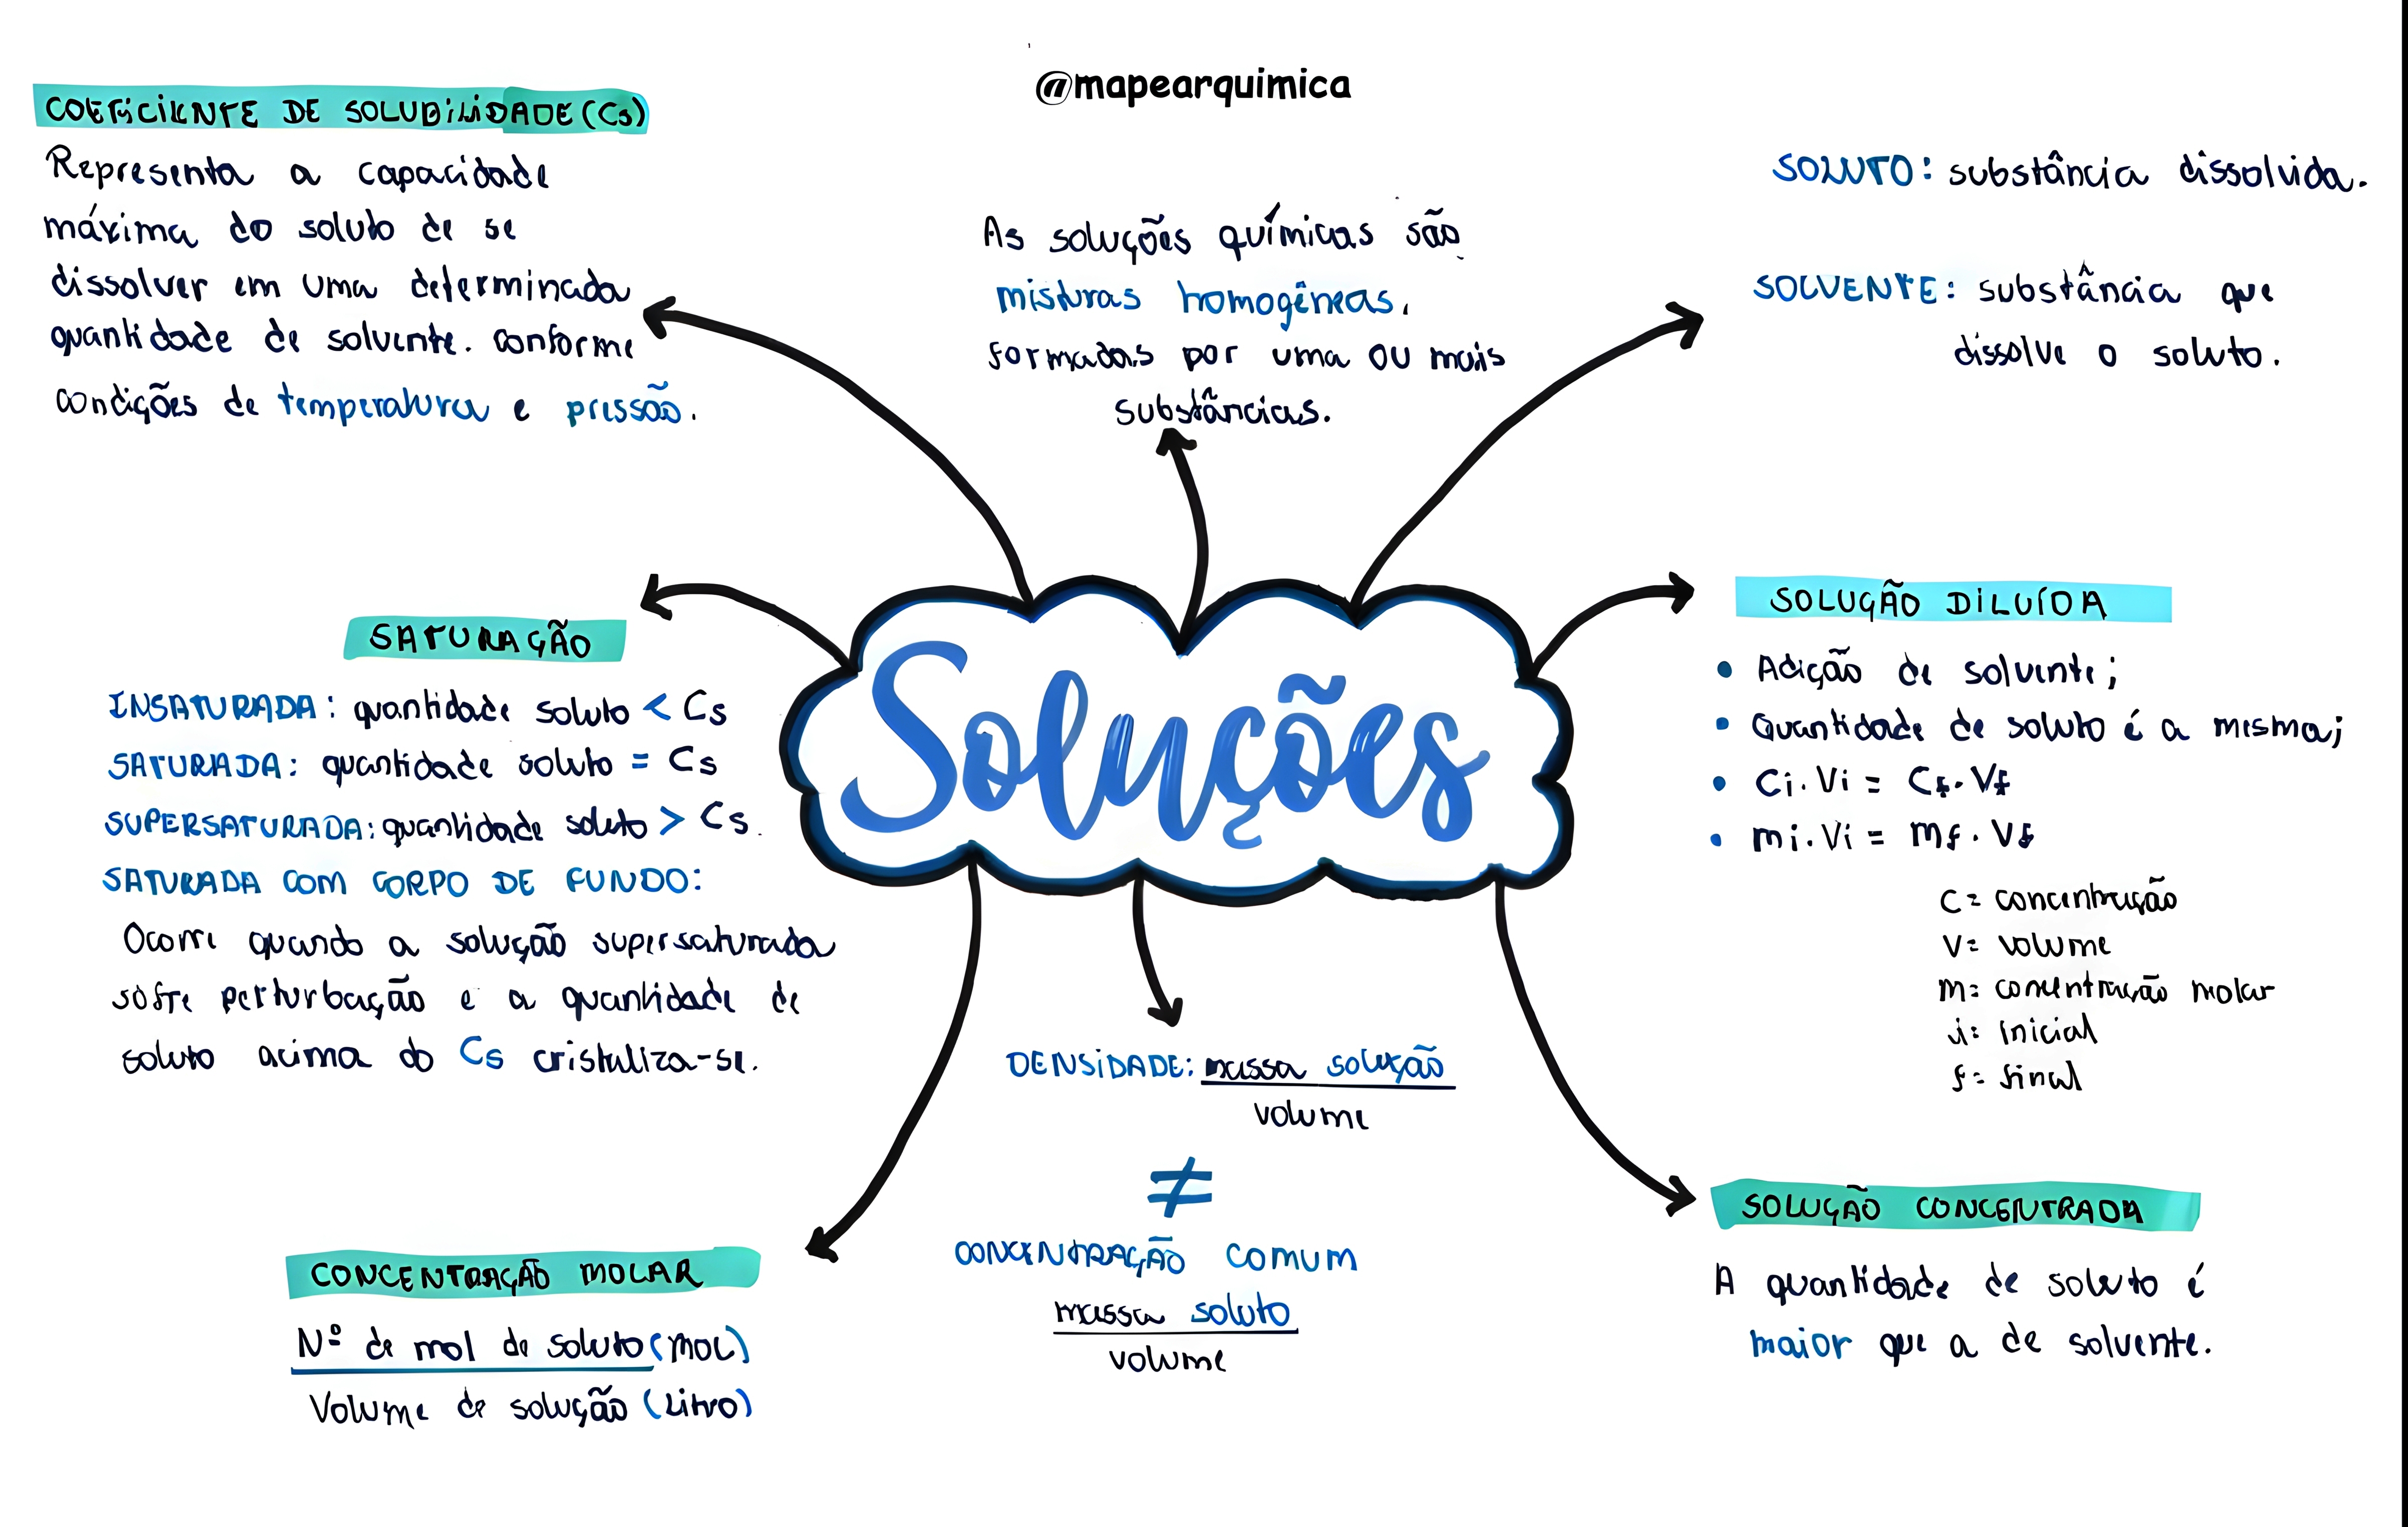 @mapearquimica
COEFICIENTE DE SOLUBILIDADE (Cs)
Representa a capacidade
máxima do soluto de se
dissolver em uma determinada
quantidade de solvente. conforme
condições de temperatura e pressão.
As soluções químicas são
misturas homogêneas.
formadas por uma ou mais
substâncias.
SOLUTO: substância dissolvida.
SOLVENTE: substância que
dissolve o soluto.
Soluções
SATURAÇÃO
INSATURADA: quantidade soluto < Cs
SATURADA: quantidade soluto = Cs
SUPERSATURADA: quantidade soluto > Cs.
SATURADA COM CORPO DE FUNDO:
Ocorre quando a solução supersaturada
sofre perturbação e a quantidade de
soluto acima do Cs cristaliza-se.
SOLUÇÃO DILUÍDA
• Adição de solvente;
• Quantidade de soluto é a mesma;
• Ci.Vi = Cf.Vf
• mi.Vi = mf.Vf
C = concentração
V = volume
m = concentração molar
i = inicial
f = final
CONCENTRAÇÃO MOLAR
Nº de mol de soluto (MOL)
Volume de solução (Litro)
DENSIDADE: massa solução
volume
≠
CONCENTRAÇÃO COMUM
massa soluto
volume
SOLUÇÃO CONCENTRADA
A quantidade de soluto é
maior que a de solvente.